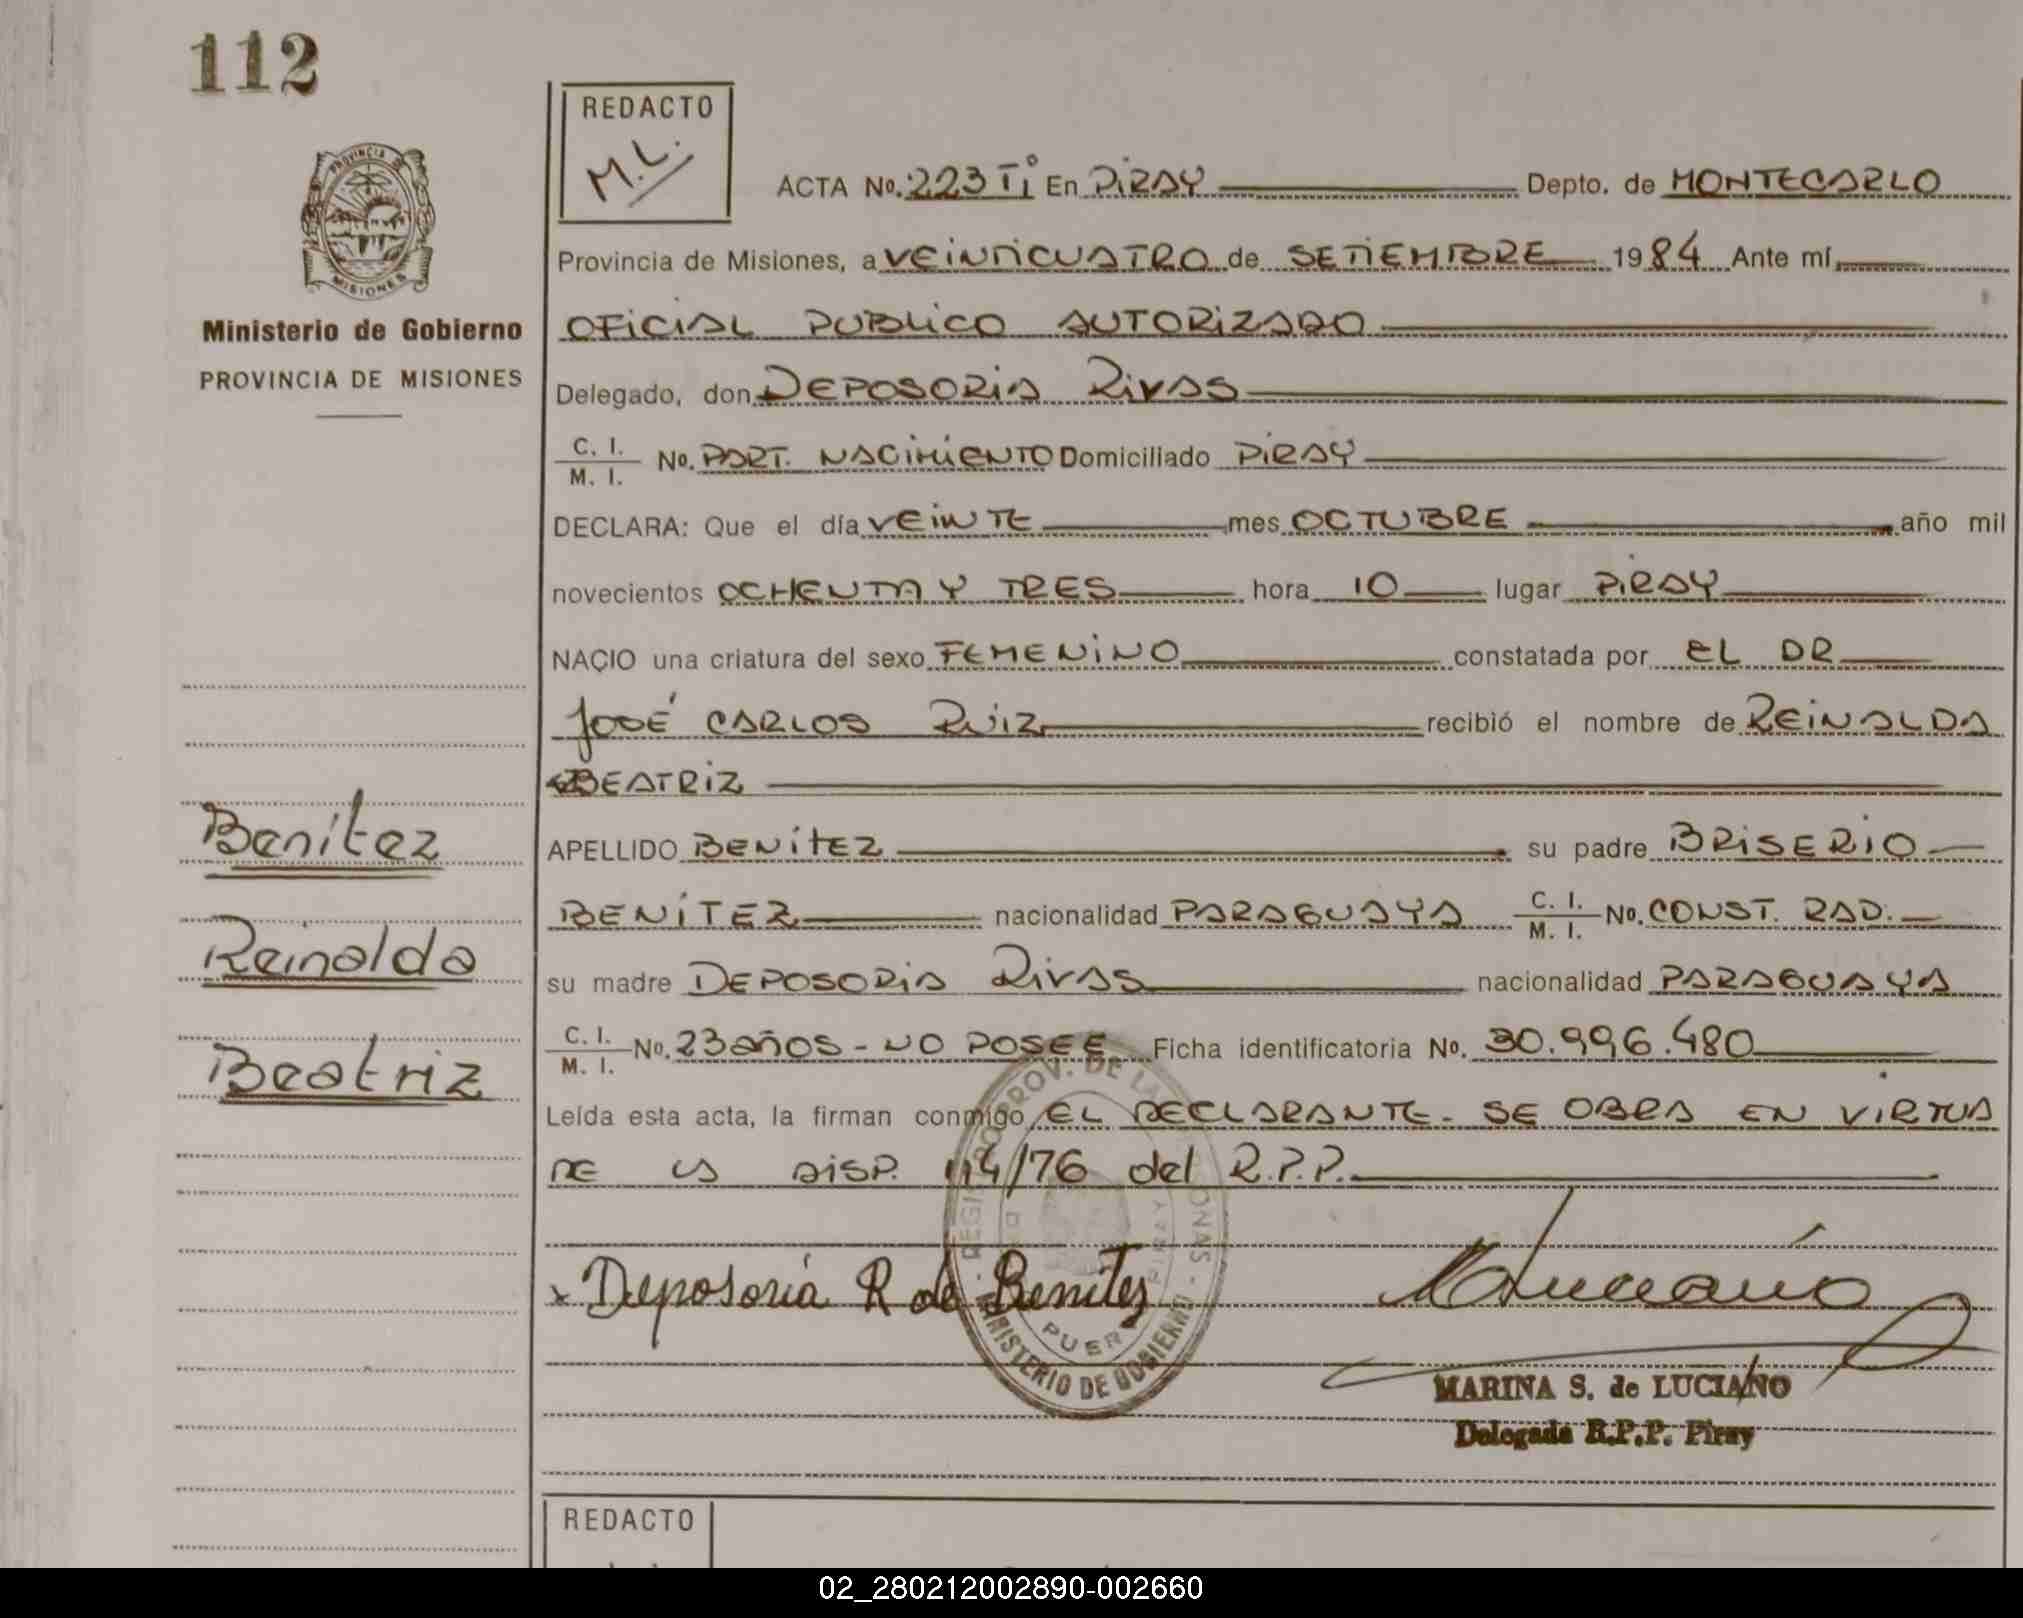 112
REDACTO
M.L.
PROVINCIA DE
MISIONES
ACTA No. 223 Tº I En PIRAY Depto. de MONTECARLO
Provincia de Misiones, a VEINTICUATRO de SETIEMBRE 1984 Ante mí
Ministerio de Gobierno
PROVINCIA DE MISIONES
OFICIAL PUBLICO AUTORIZADO
Delegado, don DEPOSORIA RIVAS
C. I. / M. I. No. PART. NACIMIENTO Domiciliado PIRAY
DECLARA: Que el día VEINTE mes OCTUBRE año mil
novecientos OCHENTA Y TRES hora 10 lugar PIRAY
NACIO una criatura del sexo FEMENINO constatada por EL DR
JOSÉ CARLOS RUIZ recibió el nombre de REINALDA
BEATRIZ
Benítez
Reinalda
Beatriz
APELLIDO BENÍTEZ su padre BRISERIO
BENÍTEZ nacionalidad PARAGUAYA C. I. / M. I. No. CONST. RAD.
su madre DEPOSORIA RIVAS nacionalidad PARAGUAYA
C. I. / M. I. No. 23 años - NO POSEE Ficha identificatoria No. 30.996.480
Leída esta acta, la firman conmigo EL DECLARANTE - SE OBRA EN VIRTUD
DE LA DISP. 114/76 del R.P.P.
x Deposoria R de Benítez
MINISTERIO DE GOBIERNO
MARINA S. de LUCIANO
Delegada R.P.P. Piray
REDACTO
02_280212002890-002660